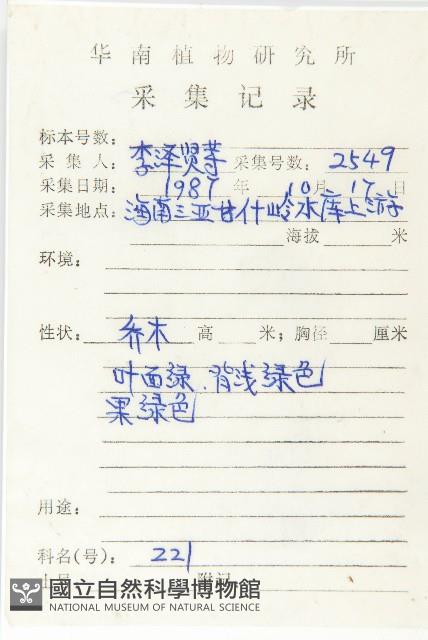 华南植物研究所
采集记录
标本号数：
采集人：李泽贤等 采集号数：2549
采集日期：1987年10月17日
采集地点：海南三亚甘什岭水库上游
海拔 米
环境：
性状：乔木 高 米；胸径 厘米
叶面绿．背浅绿色
果绿色
用途：
科名(号)：221
國立自然科學博物館
NATIONAL MUSEUM OF NATURAL SCIENCE